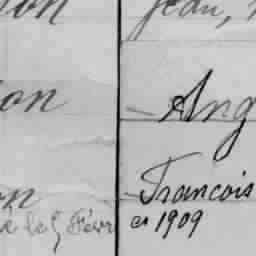 on Jean,
on Ang
on Francois
é le 5 Févr es 1909